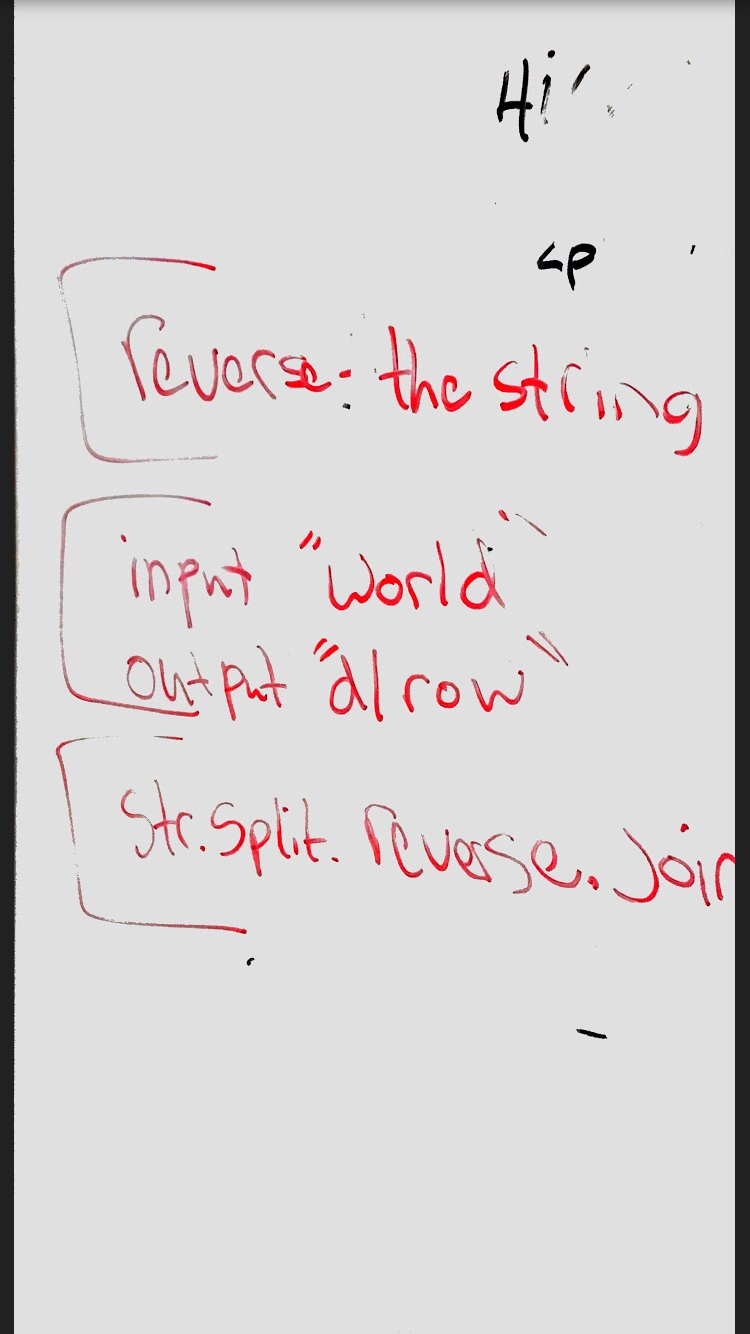 Hi
<P
reverse: the string
input "World"
output "dlrow"
Str.Split. reverse. Join